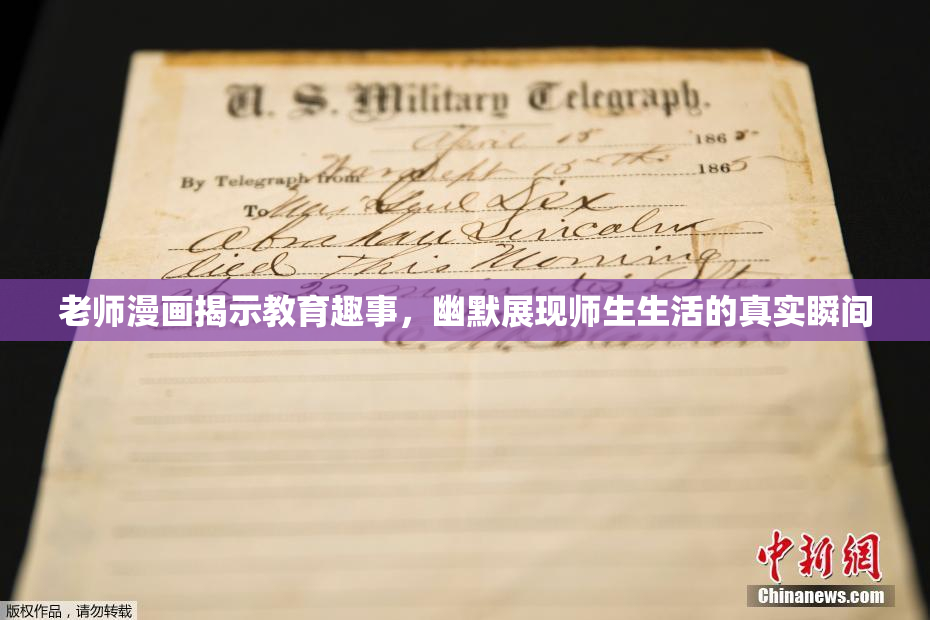 U. S. Military Telegraph.
April 15 1865
By Telegraph from War Dept 15th 1865
To Maj Genl Dix
Abraham Lincoln
died This Morning
at 22 minutes after
老师漫画揭示教育趣事，幽默展现师生生活的真实瞬间
E. M. Stanton
中新网
Chinanews.com
版权作品，请勿转载